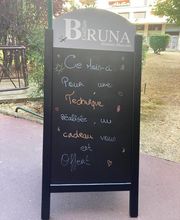 BRUNA
Ce Mois-ci
Pour une
Technique
réalisée, un
cadeau vous
est
Offert